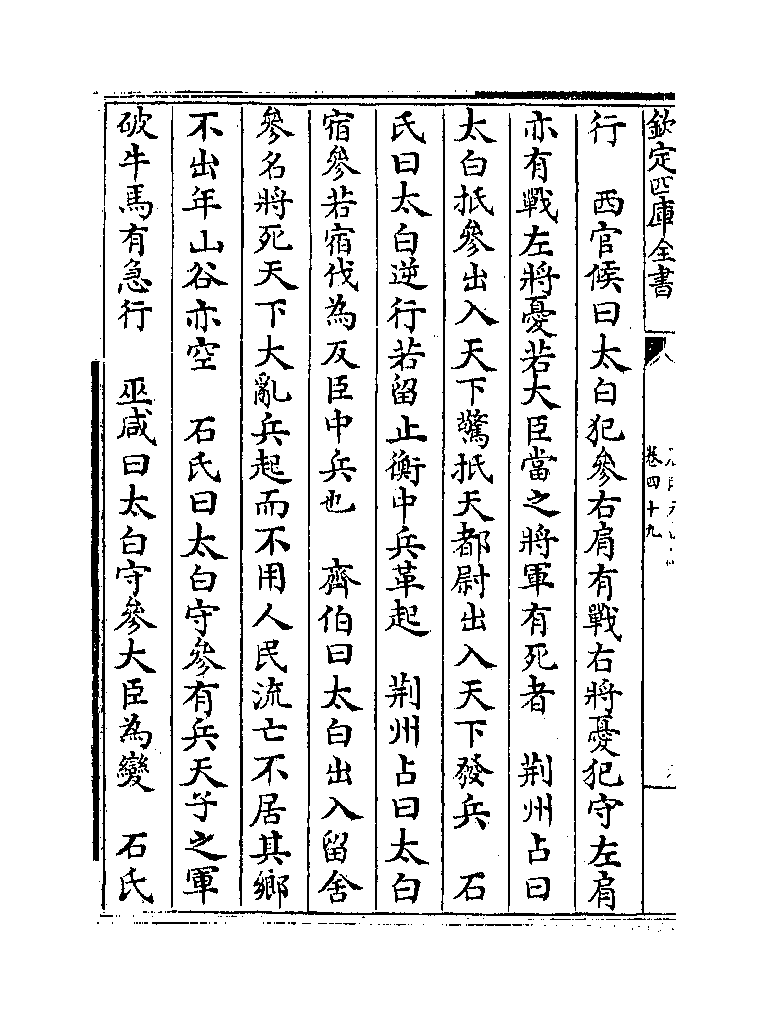 欽定四庫全書
卷四十九
行　西官候曰太白犯參右肩有戰右將憂犯守左肩
亦有戰左將憂若大臣當之將軍有死者　荆州占曰
太白抵參出入天下驚抵天都尉出入天下發兵　石
氏曰太白逆行若留止衡中兵革起　荆州占曰太白
宿參若宿伐為反臣中兵也　齊伯曰太白出入留舍
參名將死天下大亂兵起而不用人民流亡不居其鄉
不出年山谷亦空　石氏曰太白守參有兵天子之軍
破牛馬有急行　巫咸曰太白守參大臣為變　石氏